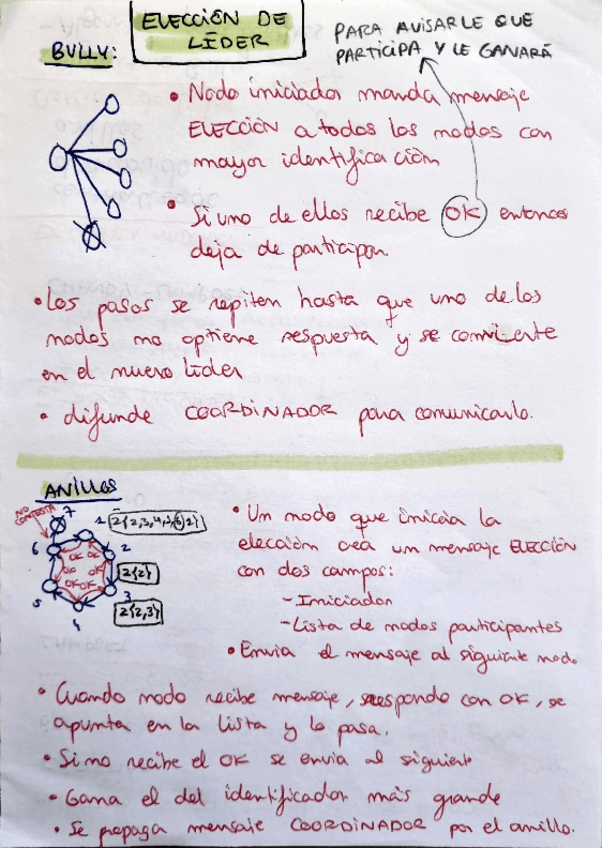 ELECCIÓN DE
LÍDER
PARA AVISARLE QUE
PARTICIPA Y LE GANARÁ
BULLY:
• Nodo iniciador manda mensaje
ELECCIÓN a todos los nodos con
mayor identificación
• Si uno de ellos recibe OK entonces
deja de participar.
• Los pasos se repiten hasta que uno de los
nodos no optiene respuesta y se convierte
en el nuevo líder
• difunde COORDINADOR para comunicarlo.
ANILLOS
NO
CONTESTA
7
1 2{2,3,4,5,6,1}
6
2
2{2}
OK OK
OK OK
OK OK
5
3
2{2,3}
4
• Un nodo que inicia la
elección crea un mensaje ELECCIÓN
con dos campos:
- Iniciador
- Lista de nodos participantes
• Envia el mensaje al siguiente nodo
• Cuando nodo recibe mensaje, responde con OK, se
apunta en la lista y lo pasa.
• Si no recibe el OK se envia al siguiente
• Gana el del identificador más grande
• Se propaga mensaje COORDINADOR por el anillo.